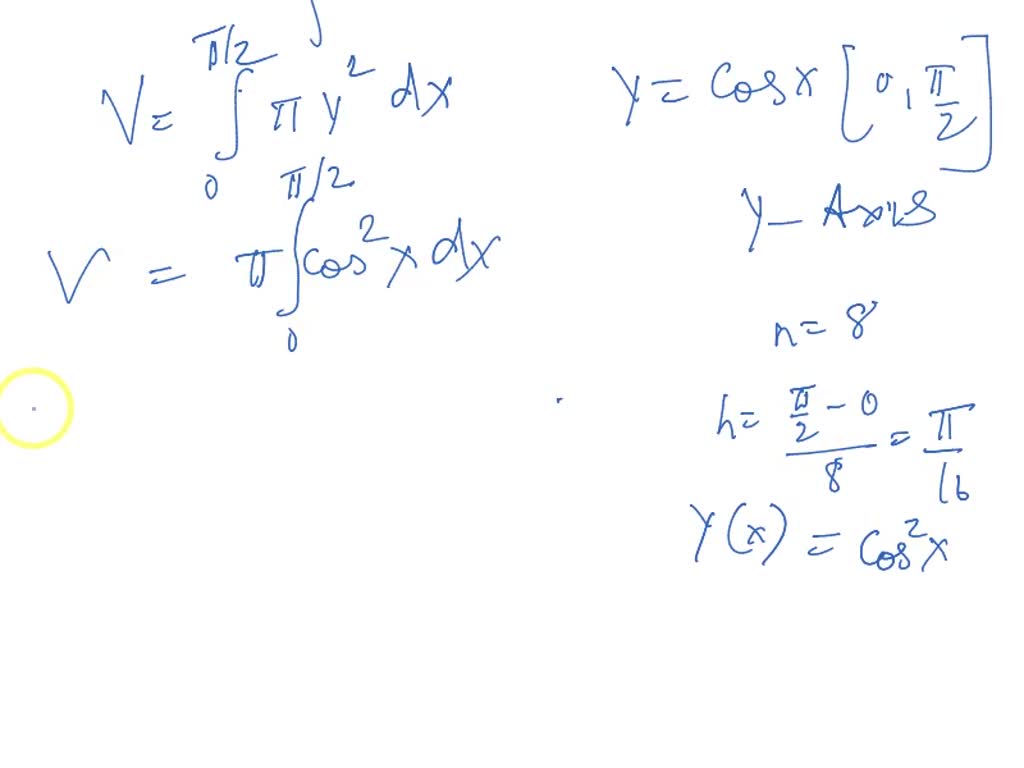 V = ∫₀^π/2 π y² dx
V = π ∫₀^π/2 cos² x dx
y = Cos x [0, π/2]
y - Axis
n = 8
h = (π/2 - 0)/8 = π/16
Y(x) = Cos² x